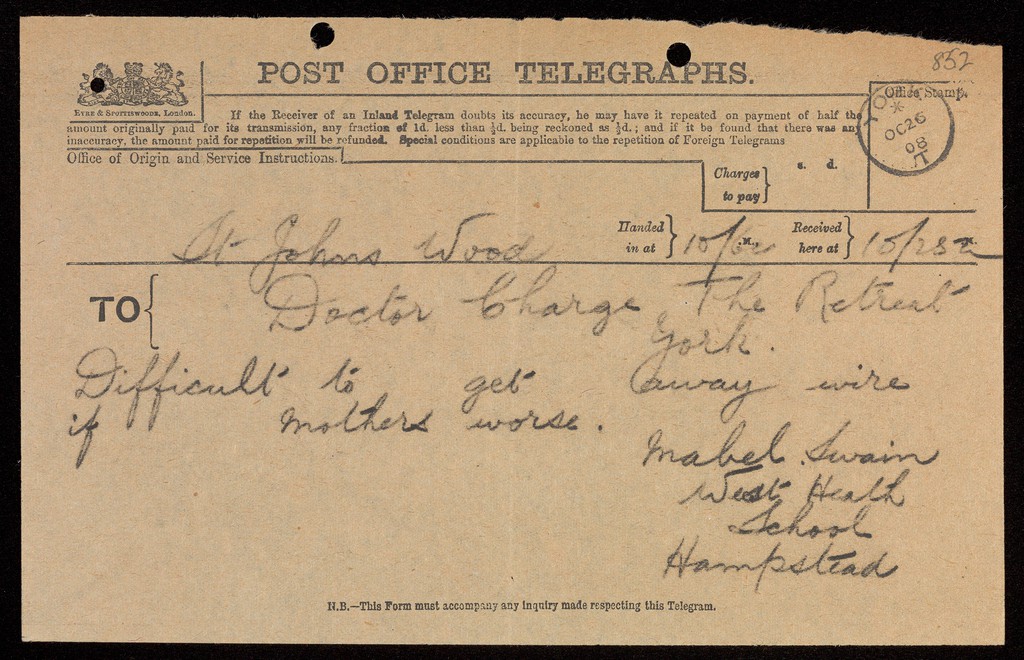 852
POST OFFICE TELEGRAPHS.
EYRE & SPOTTISWOODE, LONDON.
If the Receiver of an Inland Telegram doubts its accuracy, he may have it repeated on payment of half the
amount originally paid for its transmission, any fraction of 1d. less than ½d. being reckoned as ½d.; and if it be found that there was any
inaccuracy, the amount paid for repetition will be refunded. Special conditions are applicable to the repetition of Foreign Telegrams
Office Stamp.
YORK
*
OC 26
08
T
Office of Origin and Service Instructions.
Charges to pay } s. d.
St Johns Wood
Handed in at } 10/6 .M.,
Received here at } 10/25 a M.
TO { Doctor Charge The Retreat
York.
Difficult to get away wire
if mothers worse.
Mabel Swain
West Heath
School
Hampstead
N.B.—This Form must accompany any inquiry made respecting this Telegram.